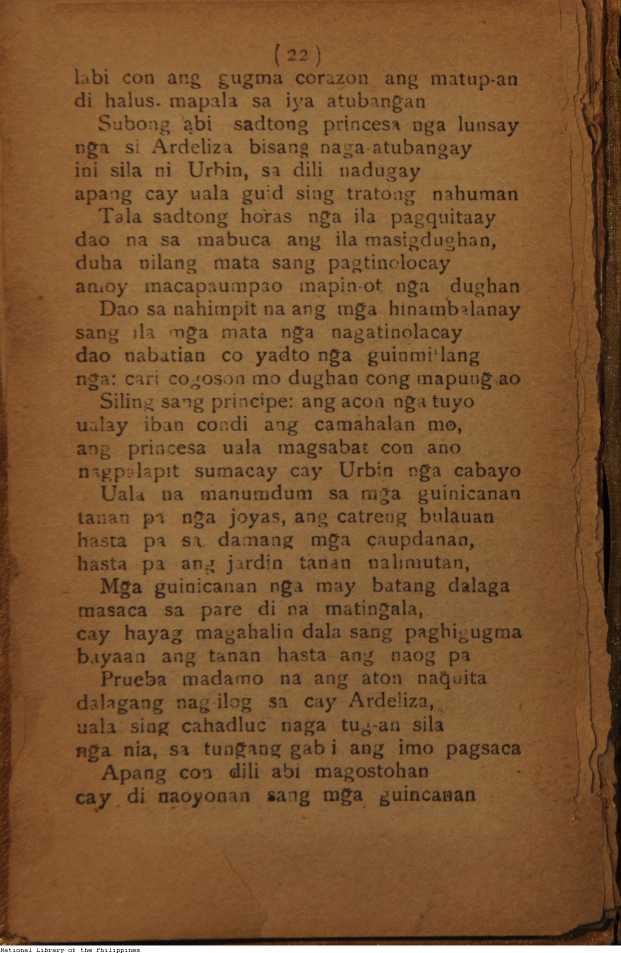 ( 22 )
labi con ang gugma corazon ang matup-an
di halus. mapala sa iya atubangan
Subong abi sadtong princesa nga lunsay
nga si Ardeliza bisang naga-atubangay
ini sila ni Urbin, sa dili nadugay
apang cay uala guid sing tratong nahuman
Tala sadtong horas nga ila pagquitaay
dao na sa mabuca ang ila masigdughan,
duha nilang mata sang pagtinolocay
amoy macapaumpao mapin-ot nga dughan
Dao sa nahimpit na ang mga hinambalanay
sang ila mga mata nga nagatinolacay
dao nabatian co yadto nga guinmitlang
nga: cari cogoson mo dughan cong mapung-ao
Siling sang principe: ang acon nga tuyo
ualay iban condi ang camahalan mo,
ang princesa uala magsabat con ano
nagpalapit sumacay cay Urbin nga cabayo
Uala na manumdum sa mga guinicanan
tanan pa nga joyas, ang catreng bulauan
hasta pa sa damang mga caupdanan,
hasta pa ang jardin tanan nalimutan,
Mga guinicanan nga may batang dalaga
masaca sa pare di na matingala,
cay hayag magahalin dala sang paghigugma
bayaan ang tanan hasta ang naog pa
Prueba madamo na ang aton naquita
dalagang nag-ilog sa cay Ardeliza,
uala sing cahadluc naga tug-an sila
nga nia, sa tungang gab i ang imo pagsaca
Apang con dili abi magostohan
cay di naoyonan sang mga guincanan
National Library of the Philippines